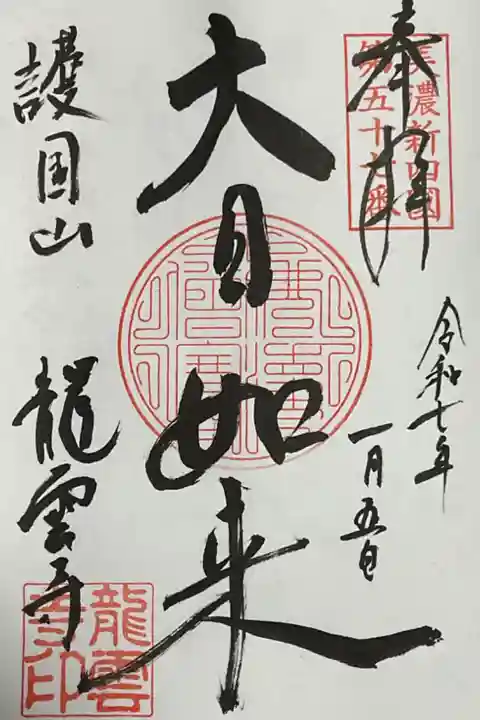 奉拝
美濃新四國
第五十 番
令和七年
一月五日
大日如来
護国山 龍雲寺
龍雲
寺印